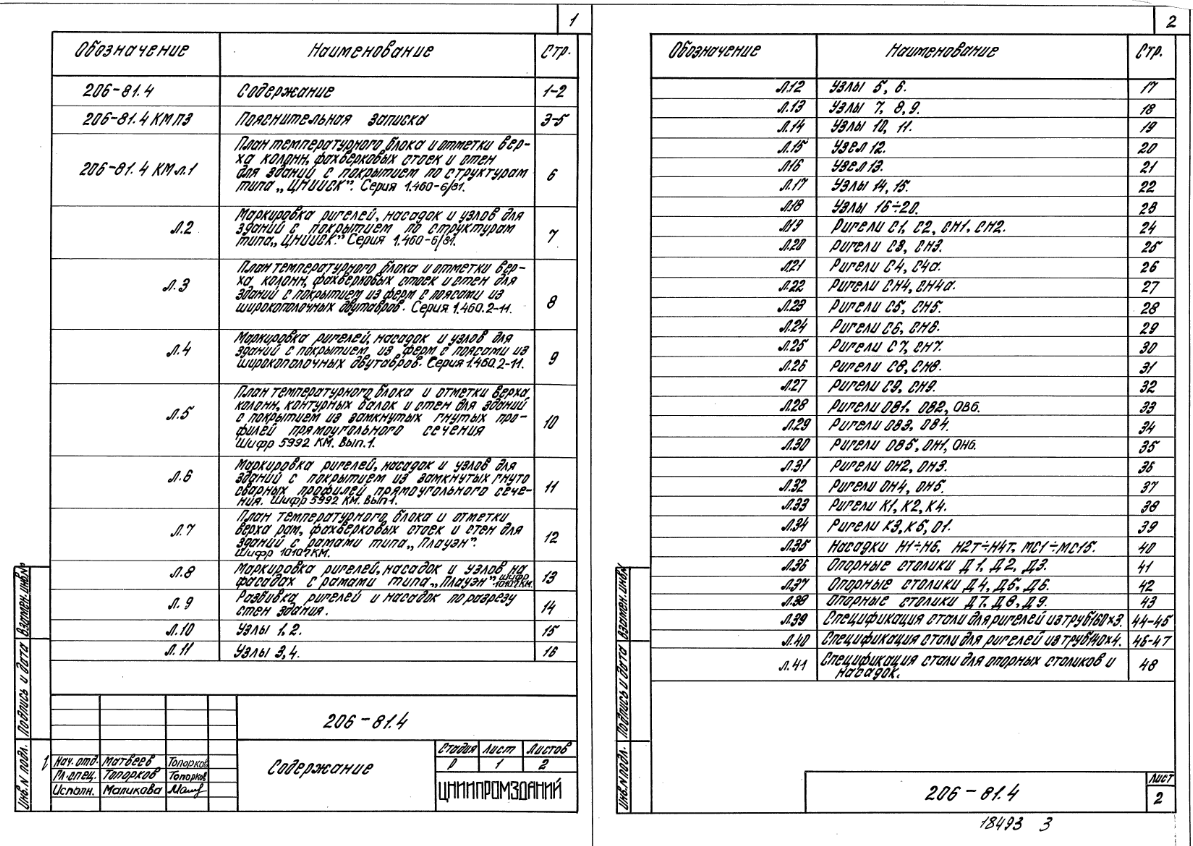 1
Обозначение Наименование Стр.
206-81.4 Содержание 1-2
206-81.4 КМ.ПЗ Пояснительная записка 3-5
206-81.4 КМ л.1
План температурного блока и отметки вер-
ха колонн, фахверковых стоек и стен
для зданий с покрытием по структурам
типа „ЦНИИСК”. Серия 1.460-6/81.
6
л.2
Маркировка ригелей, насадок и узлов для
зданий с покрытием по структурам
типа „ЦНИИСК.” Серия 1.460-6/81.
7
л.3
План температурного блока и отметки вер-
ха, колонн, фахверковых стоек и стен для
зданий с покрытием из ферм с поясами из
широкополочных двутавров. Серия 1.460.2-11.
8
л.4
Маркировка ригелей, насадок и узлов для
зданий с покрытием из ферм с поясами из
широкополочных двутавров. Серия 1.460.2-11.
9
л.5
План температурного блока и отметки верха
колонн, контурных балок и стен для зданий
с покрытием из замкнутых гнутых про-
филей прямоугольного сечения
Шифр 5992 КМ. Вып.1.
10
л.6
Маркировка ригелей, насадок и узлов для
зданий с покрытием из замкнутых гнуто
сварных профилей прямоугольного сече-
ния. Шифр 5992 КМ. Вып.1.
11
л.7
План температурного блока и отметки
верха рам, фахверковых стоек и стен для
зданий с рамами типа „Плауэн”.
Шифр 10107КМ.
12
л.8
Маркировка ригелей, насадок и узлов на
фасадах с рамами типа „Плауэн” Шифр 10107КМ.
13
л.9
Разбивка ригелей и насадок по разрезу
стен здания.
14
л.10 Узлы 1, 2. 15
л.11 Узлы 3, 4. 16
206-81.4
Содержание
Стадия Лист Листов
Р 1 2
ЦНИИПРОМЗДАНИЙ
Нач. отд. Матвеев Топорков
Гл. спец. Топорков Топорков
Исполн. Маликова
Взамен. инв.№
Подпись и дата
Инв. № подл.
2
Обозначение Наименование Стр.
л.12 Узлы 5, 6. 17
л.13 Узлы 7, 8, 9. 18
л.14 Узлы 10, 11. 19
л.15 Узел 12. 20
л.16 Узел 13. 21
л.17 Узлы 14, 15. 22
л.18 Узлы 16÷20. 23
л.19 Ригели С1, С2, СН1, СН2. 24
л.20 Ригели С3, СН3. 25
л.21 Ригели С4, С4а. 26
л.22 Ригели СН4, СН4а. 27
л.23 Ригели С5, СН5. 28
л.24 Ригели С6, СН6. 29
л.25 Ригели С7, СН7. 30
л.26 Ригели С8, СН8. 31
л.27 Ригели С9, СН9. 32
л.28 Ригели ОВ1, ОВ2, ОВ6. 33
л.29 Ригели ОВ3, ОВ4. 34
л.30 Ригели ОВ5, ОН1, ОН6. 35
л.31 Ригели ОН2, ОН3. 36
л.32 Ригели ОН4, ОН5. 37
л.33 Ригели К1, К2, К4. 38
л.34 Ригели К3, К5, О1. 39
л.35 Насадки Н1÷Н6, Н2Т÷Н4Т, МС1÷МС15. 40
л.36 Опорные столики Д1, Д2, Д3. 41
л.37 Опорные столики Д4, Д5, Д6. 42
л.38 Опорные столики Д7, Д8, Д9. 43
л.39 Спецификация стали для ригелей из труб160×3. 44-45
л.40 Спецификация стали для ригелей из труб140×4. 46-47
л.41
Спецификация стали для опорных столиков и
насадок.
48
Взамен. инв№
Подпись и дата
Инв.№подл.
206-81.4
Лист
2
18493 3